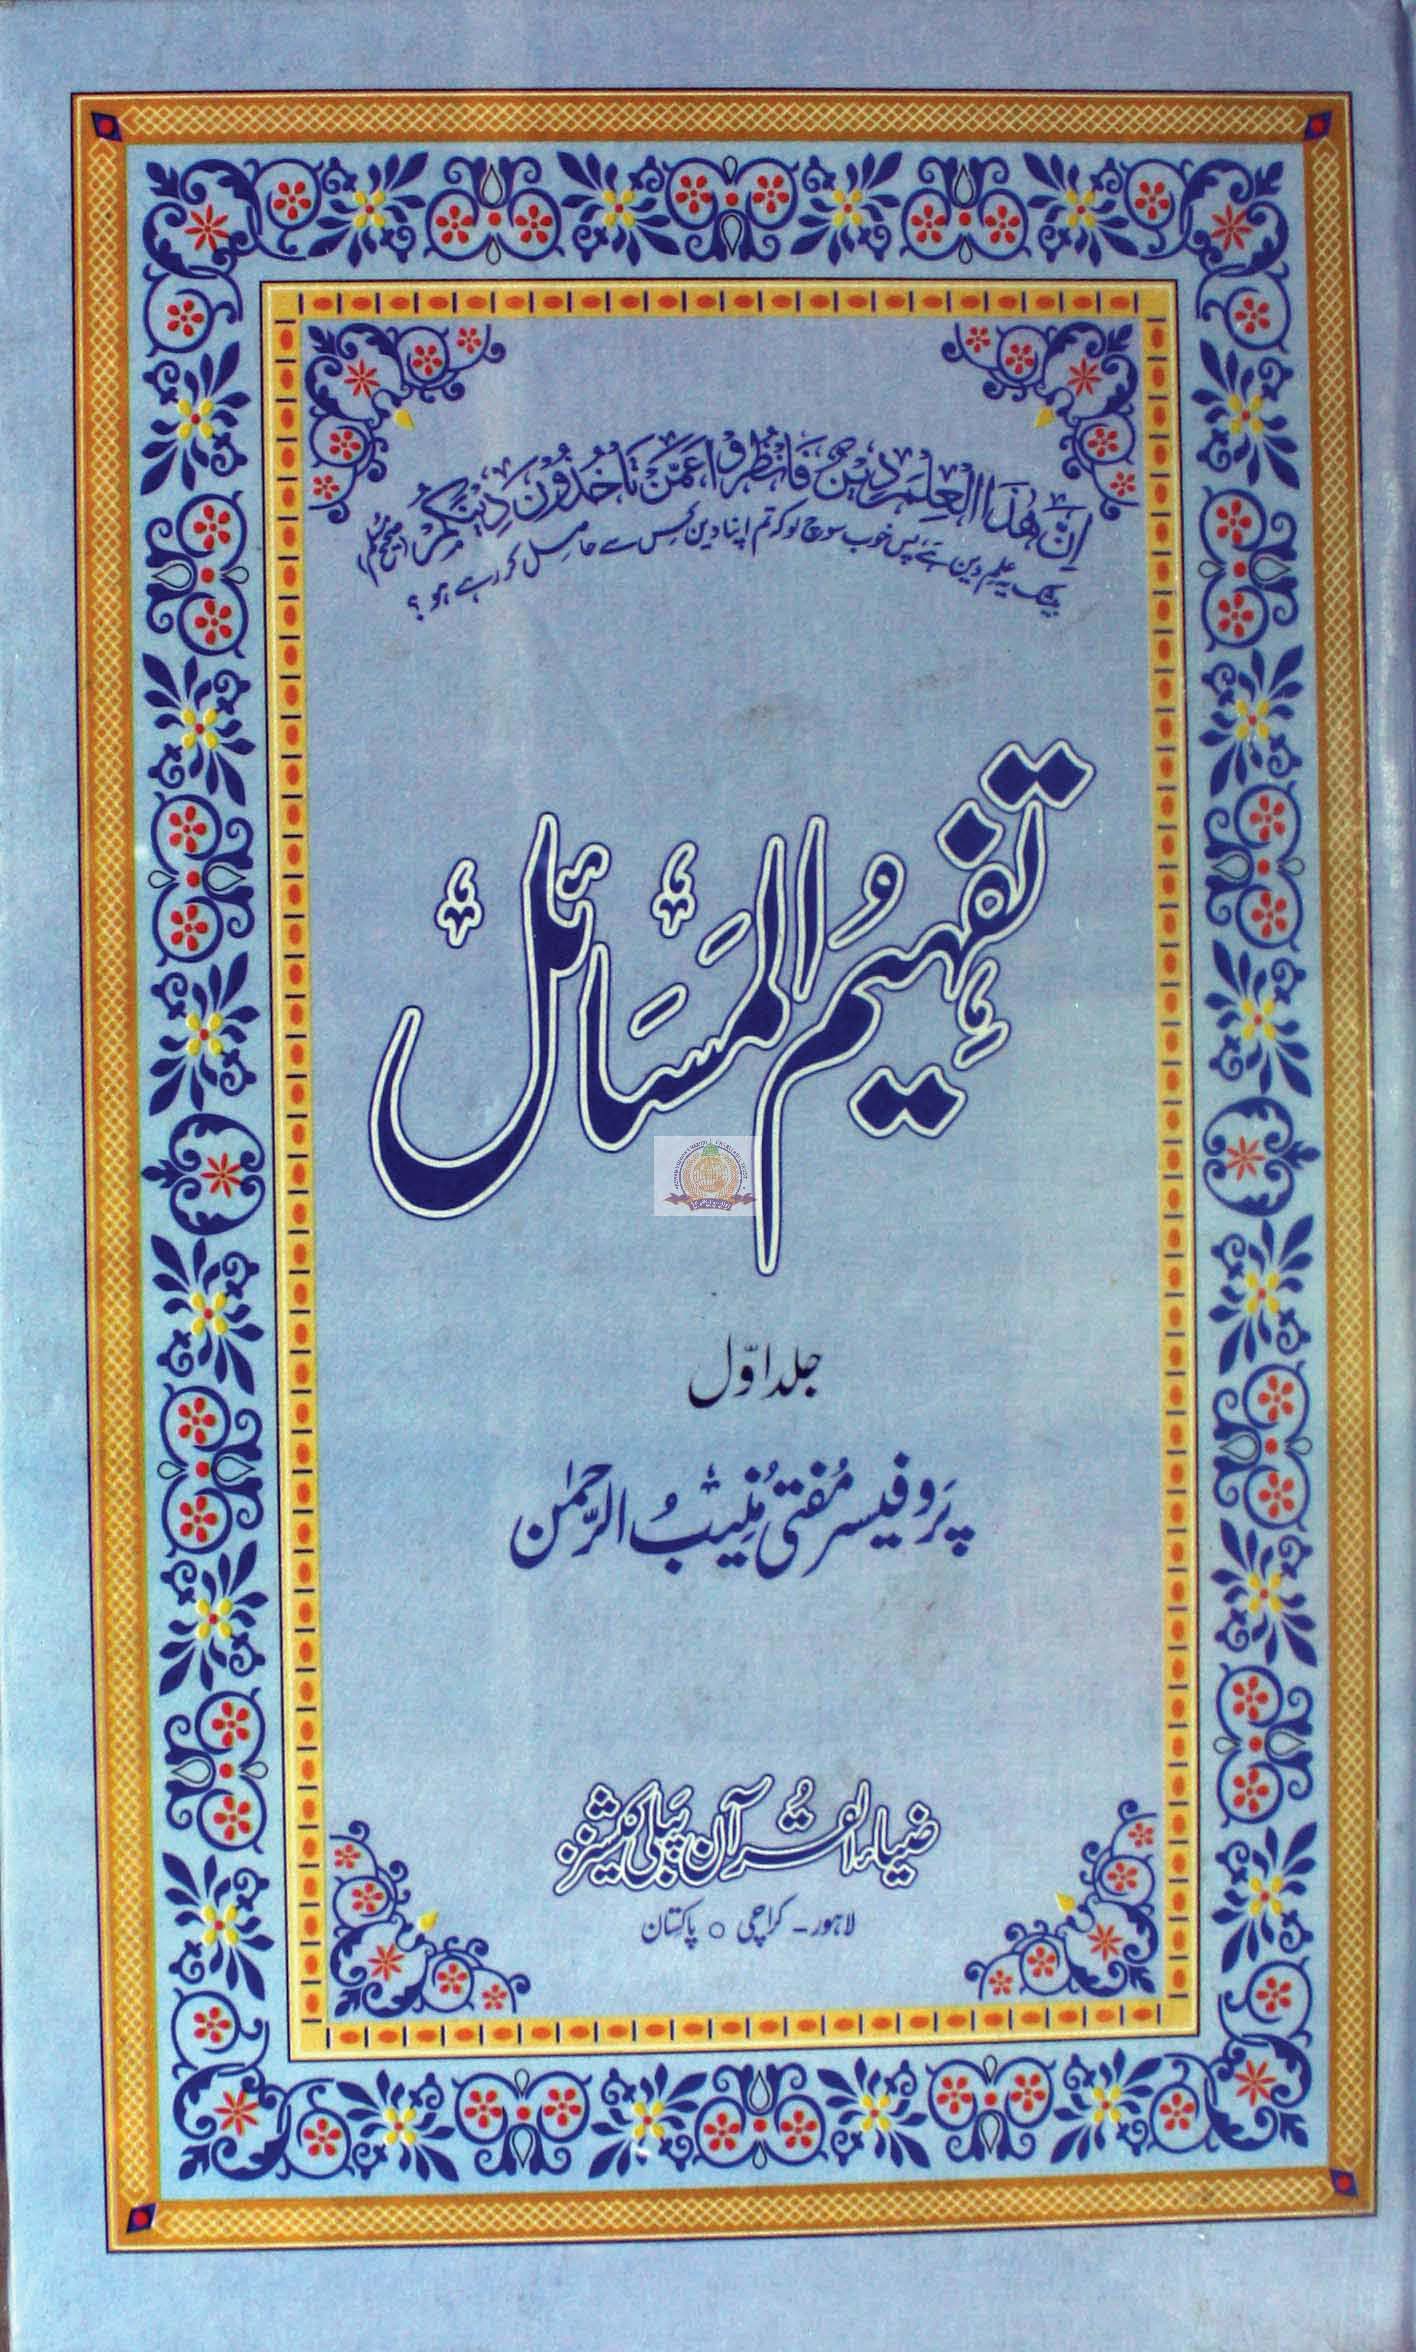 اِنَّ هٰذَا الْعِلْمَ دِیْنٌ فَانْظُرُوْا عَمَّنْ تَاْخُذُوْنَ دِیْنَكُمْ (صحیح مسلم)
بیشک یہ علم دین ہے پس خوب سوچ لو کہ تم اپنا دین کس سے حاصل کر رہے ہو؟
تفہیمُ المَسَائل
جلد اوّل
پروفیسر مُفتی مُنیبُ الرَّحمٰن
ضیاء القُرآن پبلی کیشنز
لاہور - کراچی ○ پاکستان